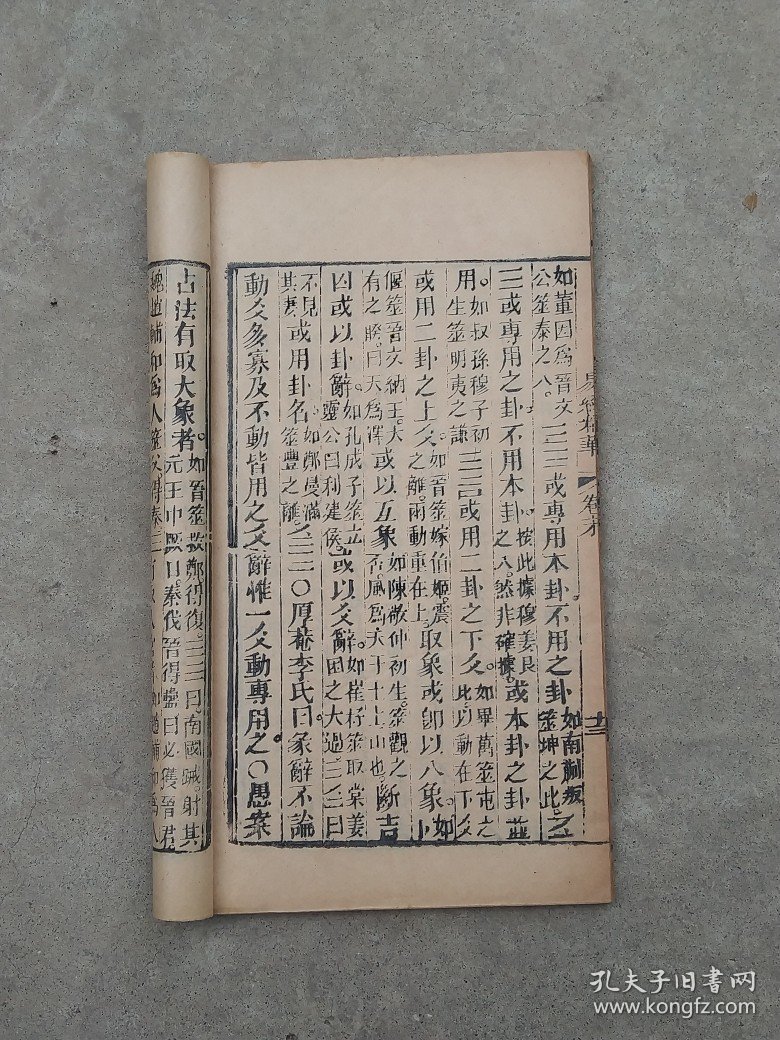 易經精華
卷末
如董因爲晉文
公筮泰之八。三三或專用本卦不用之卦如南蒯叛筮坤之比。又
三或專用之卦不用本卦按此據穆姜艮之八。然非確據。或本卦之卦並
用。如叔孫穆子初生筮明夷之謙三三或用二卦之下爻。如畢萬筮屯之比。以動在下爻
或用二卦之上爻如晉筮嫁伯姬。震之離。兩動重在上。取象或卽以八象。如卜
偃筮晉文納王。大有之睽。曰天爲澤或以互象如陳敬仲初生。筮觀之否。風爲天于土上山也。斷吉
凶或以卦辭。如孔成子筮立靈公。曰利建侯。或以爻辭。如崔杼筮取棠姜困之大過三三曰
不見其妻或用卦名如鄭曼滿筮豐之離。三三〇厚菴李氏曰彖辭不論
動爻多寡及不動皆用之爻辭惟一爻動專用之〇愚案
古法有取大象者。如晉筮救鄭得復。三三曰南國蹙。射其元王中厥目。秦伐晉得蠱曰必獲晉君